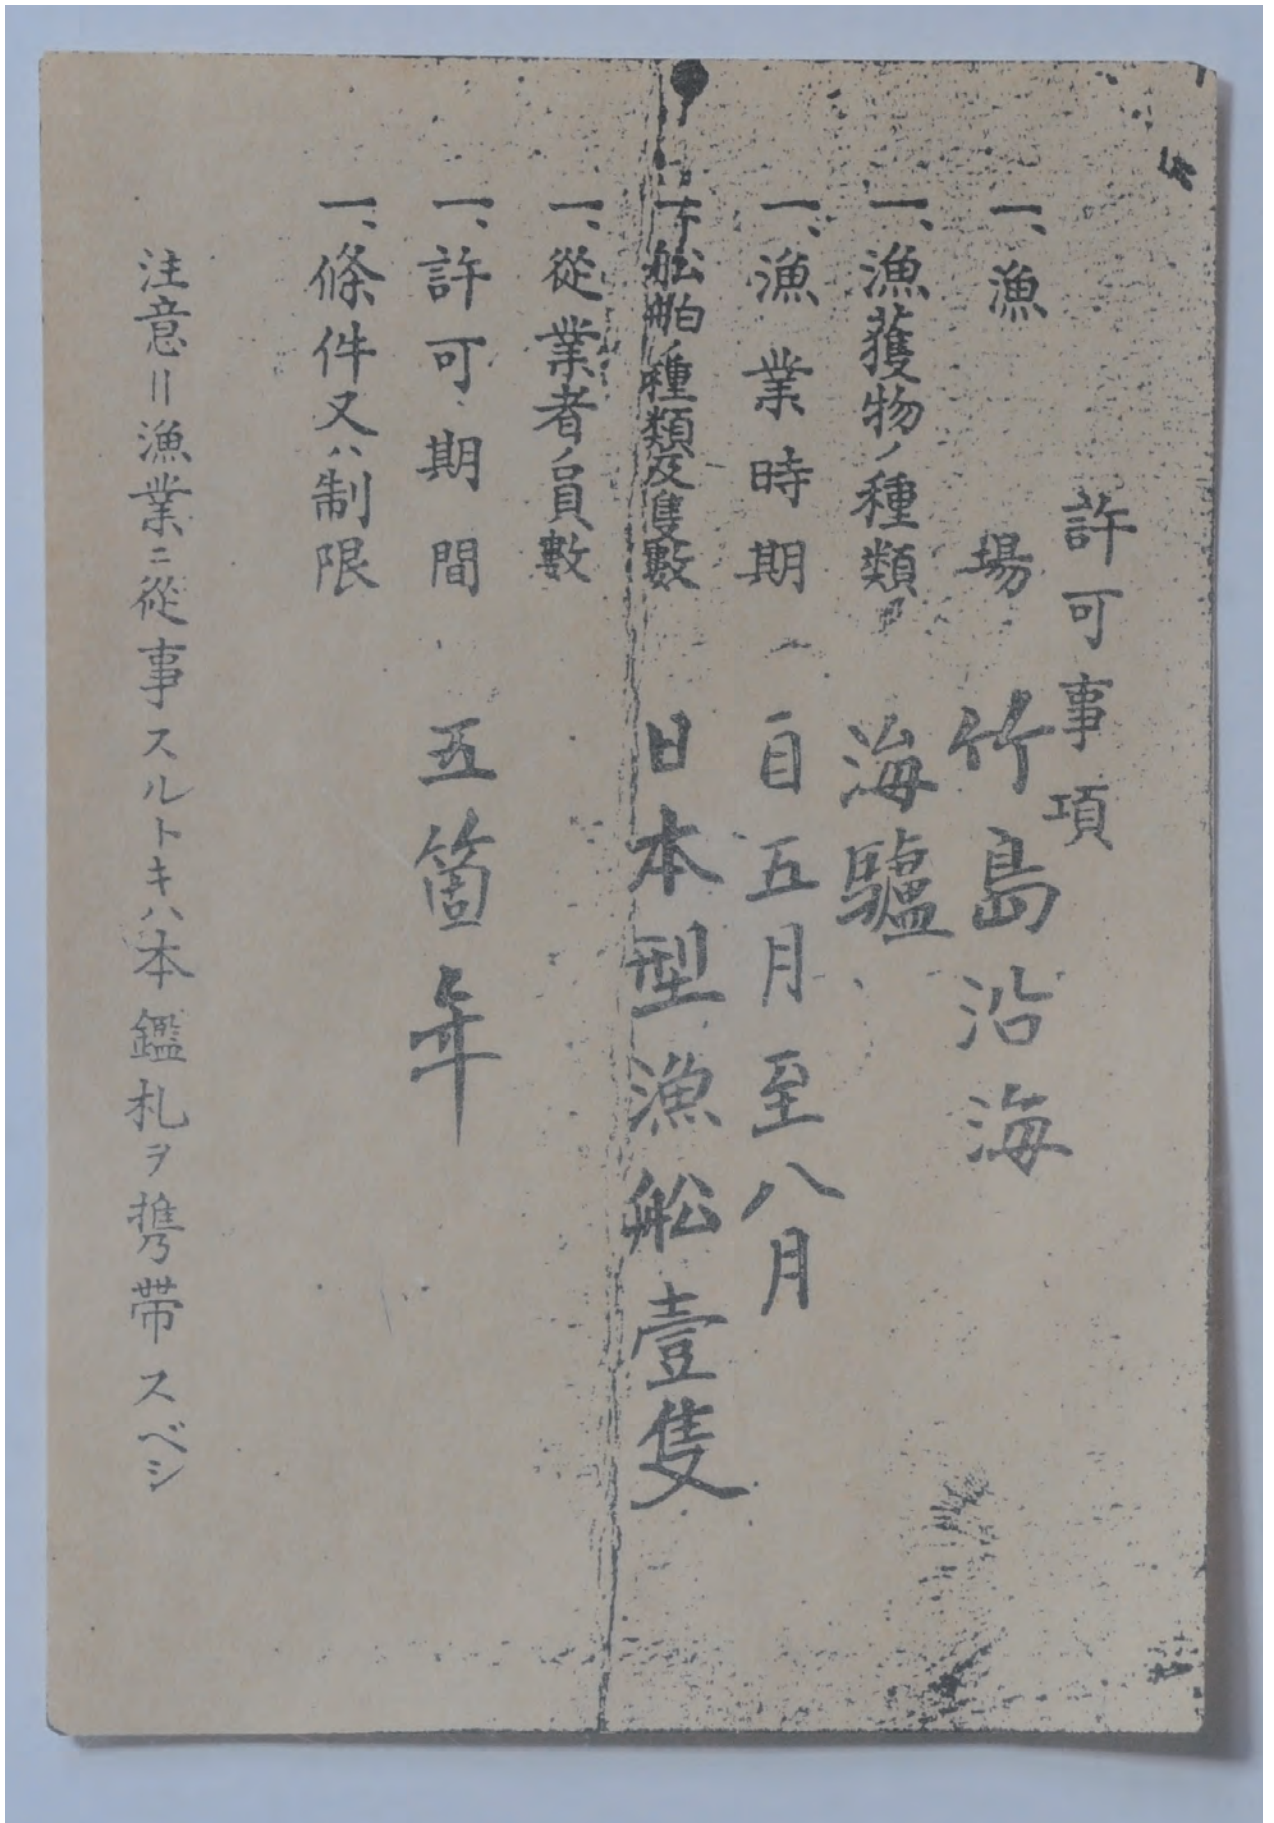 許可事項
一、漁場 竹島沿海
一、漁獲物ノ種類 海驢
一、漁業時期 自五月至八月
一、舩舶ノ種類及隻數 日本型漁舩壹隻
一、從業者ノ員數
一、許可期間 五箇年
一、條件又ハ制限
注意＝漁業ニ從事スルトキハ本鑑札ヲ携帯スベシ